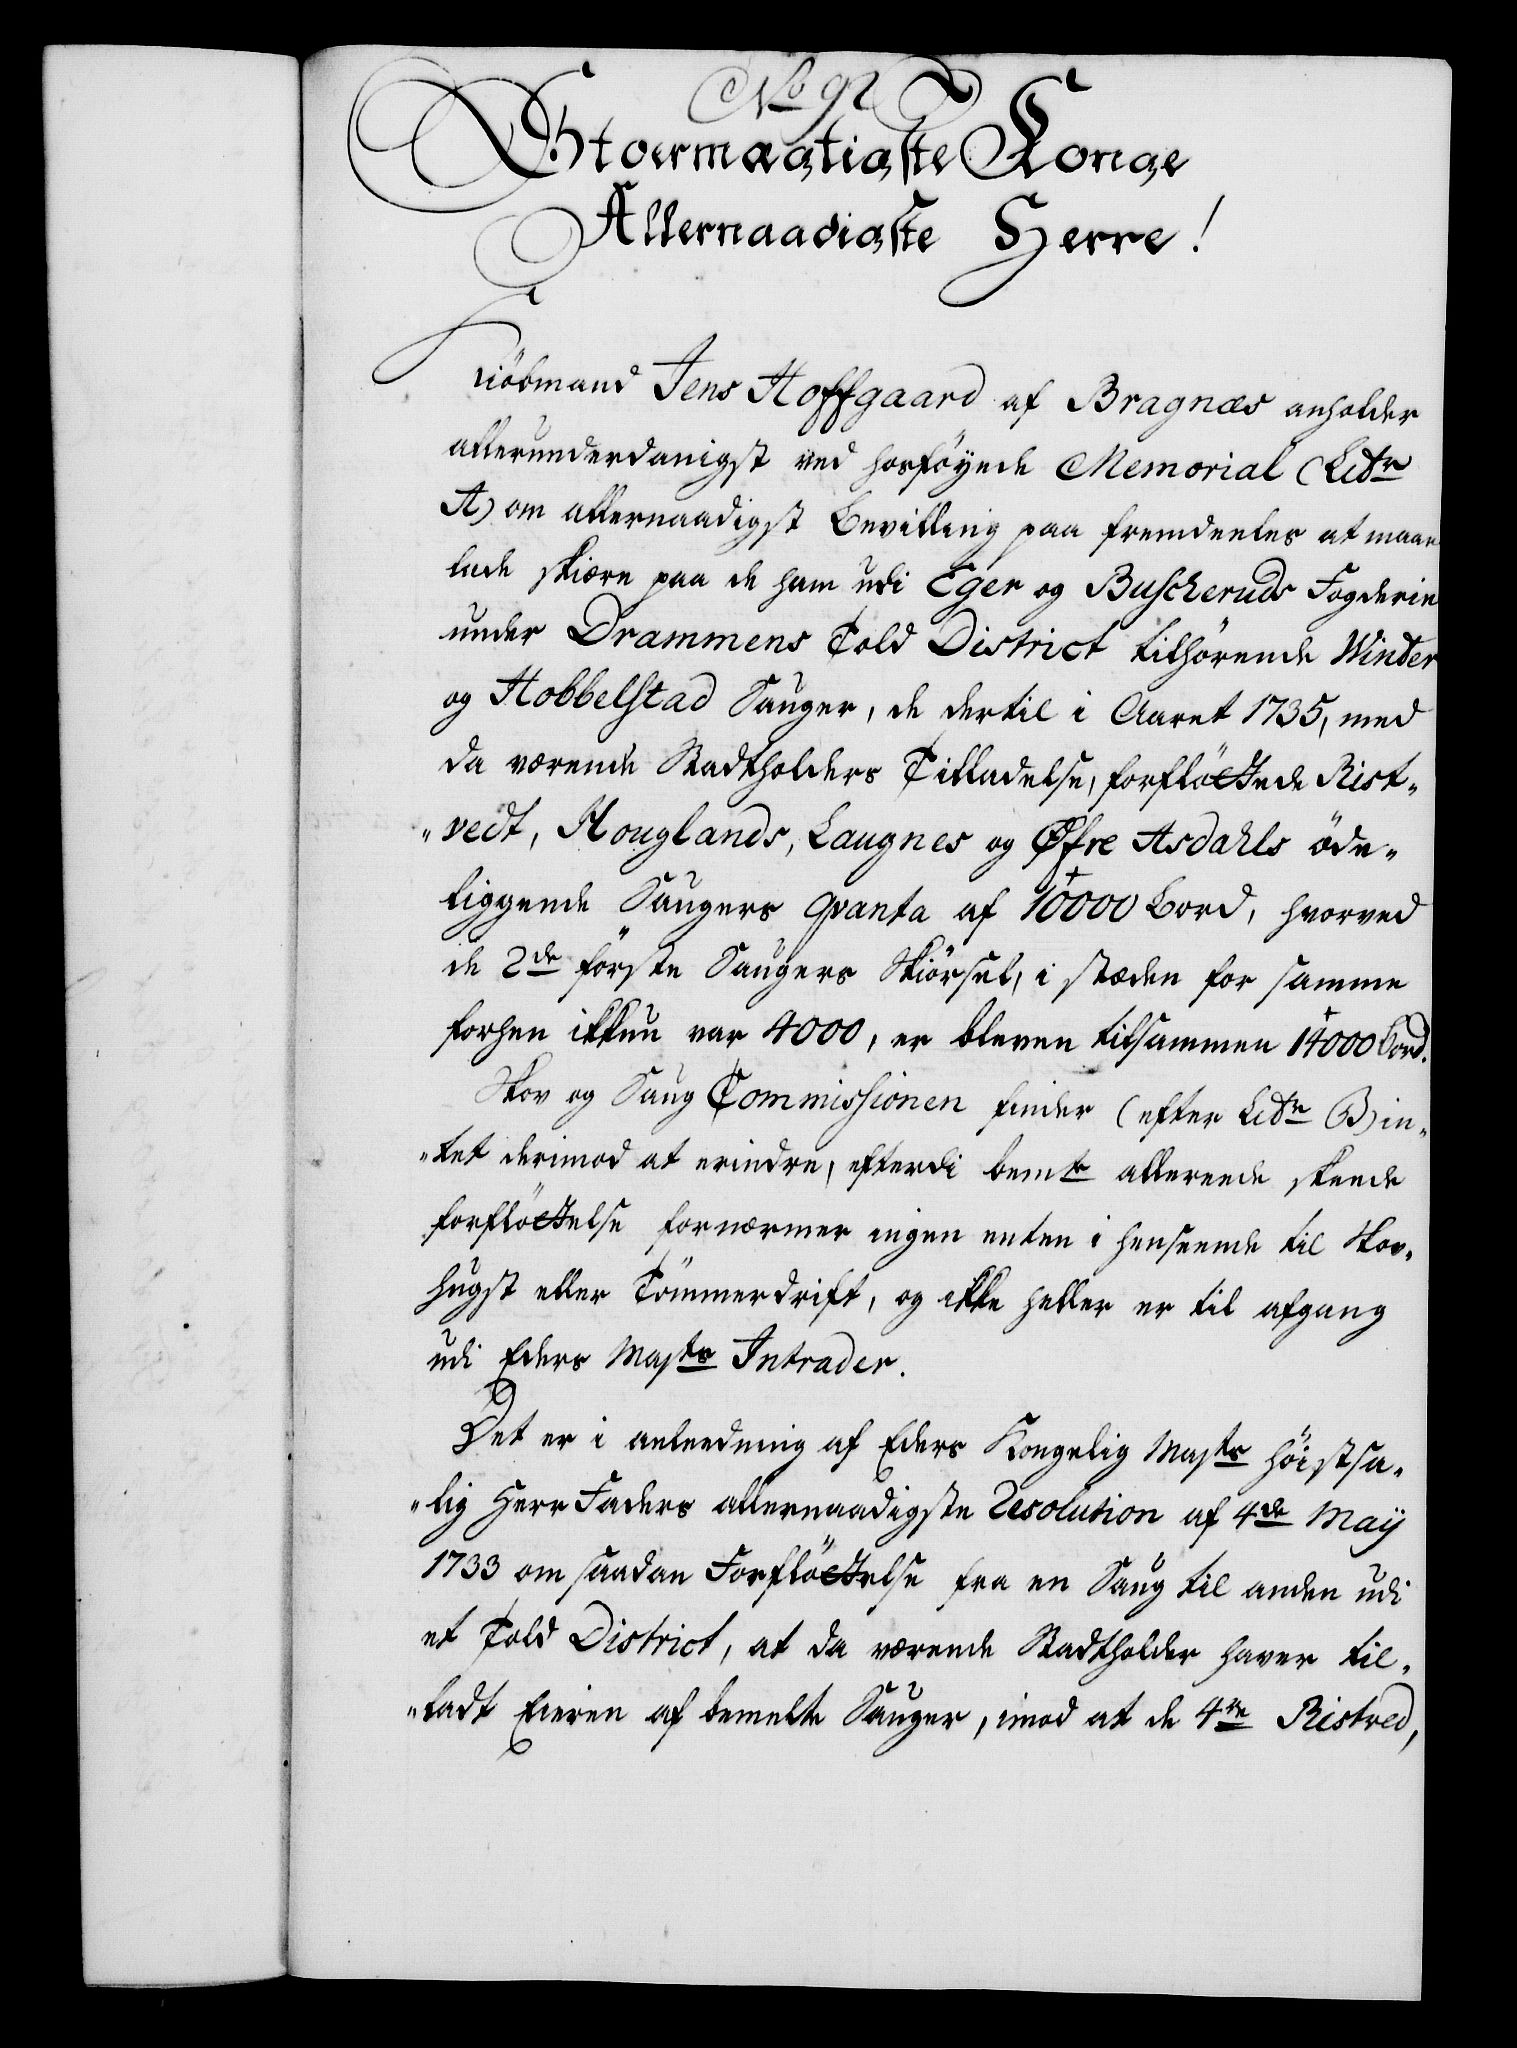 No 92
Stormægtigste Konge
Allernaadigste Herre!
Kiöbmand Jens Hoffgaard af Bragnæs anholder
allerunderdanigst ved hosföyede Memorial (Litr
A) om allernaadigst Bevilling paa fremdeeles at maae
lade skiære paa de ham udi Eger og Buscheruds Fogderie
under Drammens Told District tilhörende Winter
og Hobbelstad Sauger, de dertil i Aaret 1735, med
da værende Stadtholders Tilladelse, forflöttede Rist-
„vedt, Houglands, Laugnes og Øfre Asdahls öde-
liggende Saugers qvanta af 10000 Bord, hvorved
de 2de förste Saugers Skiörsel, i stæden for samme
forhen ikkun var 4000, er bleven tilsammen 14000 Bord.
Skov og Saug Commissionen finder (efter Litr B) in-
„tet derimod at erindre, efterdi bemte allerede skeede
forflöttelse fornærmer ingen enten i henseende til Skov-
hugst eller Tömmerdrift, og ikke heller er til afgang
udi Eders Majts Intrader.
Det er i anleedning af Eders Kongelig Majts Höistsa-
„lig Herr Faders allernaadigste Resolution af 4de Maij
1733 om saadan Forflöttelse fra en Saug til anden udi
et Told District, at da værende Stadtholder haver til-
„ladt Eieren af bemelte Sauger, imod at de 4re Ristved,